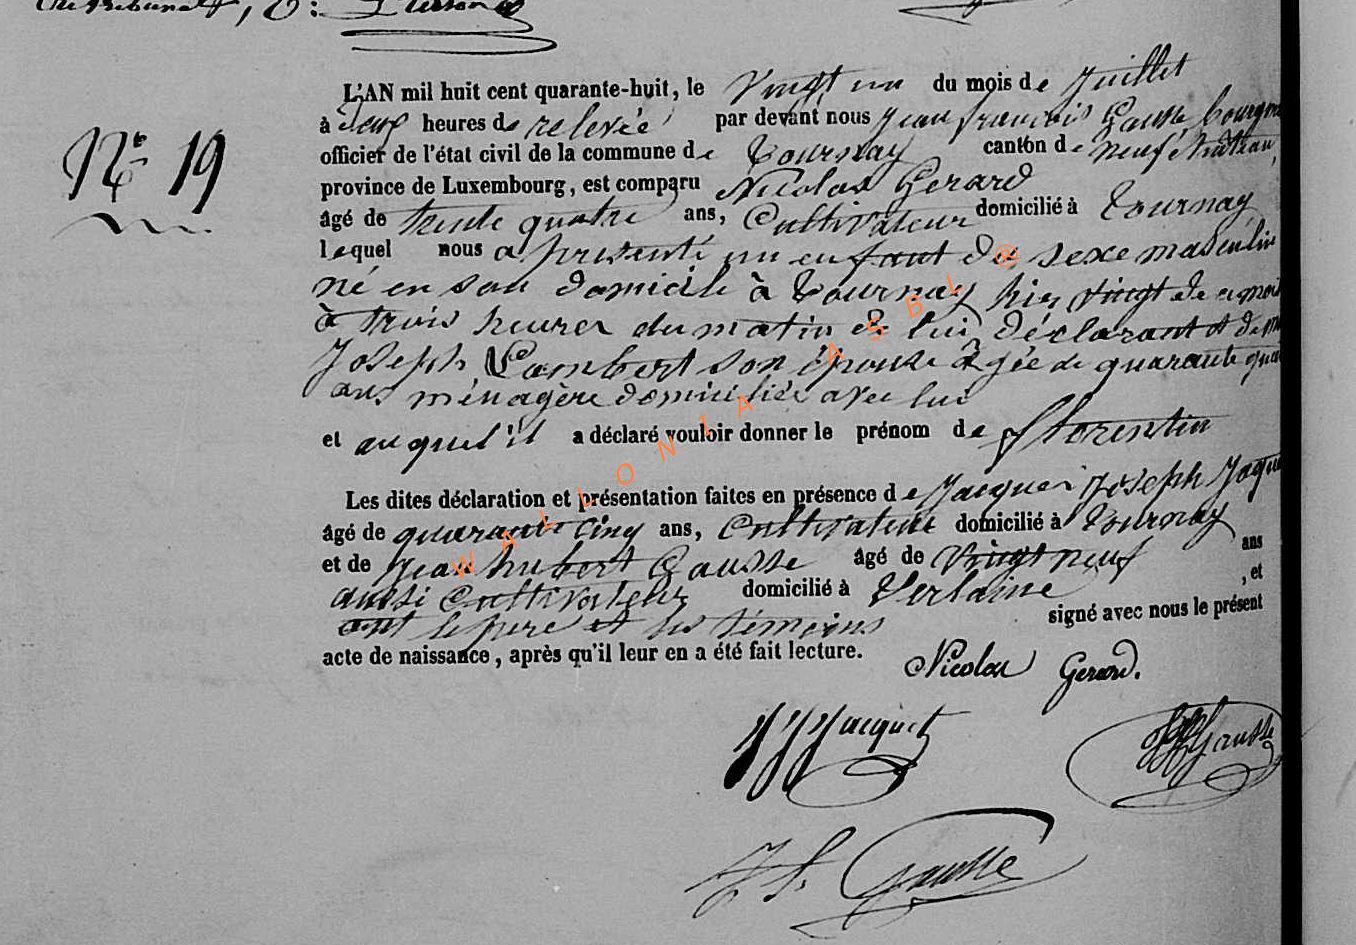 L'AN mil huit cent quarante-huit, le Vingt un du mois de Juillet
à deux heures de relevée par devant nous Jean françois Gausse bourgm
officier de l'état civil de la commune de Tournay canton de neufchâteau,
province de Luxembourg, est comparu Nicolas Gerard
N° 19
âgé de trente quatre ans, Cultivateur domicilié à Tournay
lequel nous a présenté un enfant du sexe masculin
né en son domicile à Tournay hier vingt de ce mois
à trois heures du matin de lui déclarant et de M
Joseph Lambert son épouse âgée de quarante qua
ans ménagère domiciliée avec lui
et auquel il a déclaré vouloir donner le prénom de florentin
Les dites déclaration et présentation faites en présence de Jacques Joseph Jaque
âgé de quarante cinq ans, Cultivateur domicilié à Tournay
et de Jean hubert Gausse âgé de Vingt neuf ans
aussi Cultivateur domicilié à Verlaine , et
ont le père et les témoins signé avec nous le présent
acte de naissance, après qu'il leur en a été fait lecture.
Nicolas Gerard.
JJ Jacquet
Gausse
J f. Gausse
WALLONIA ASBL ®